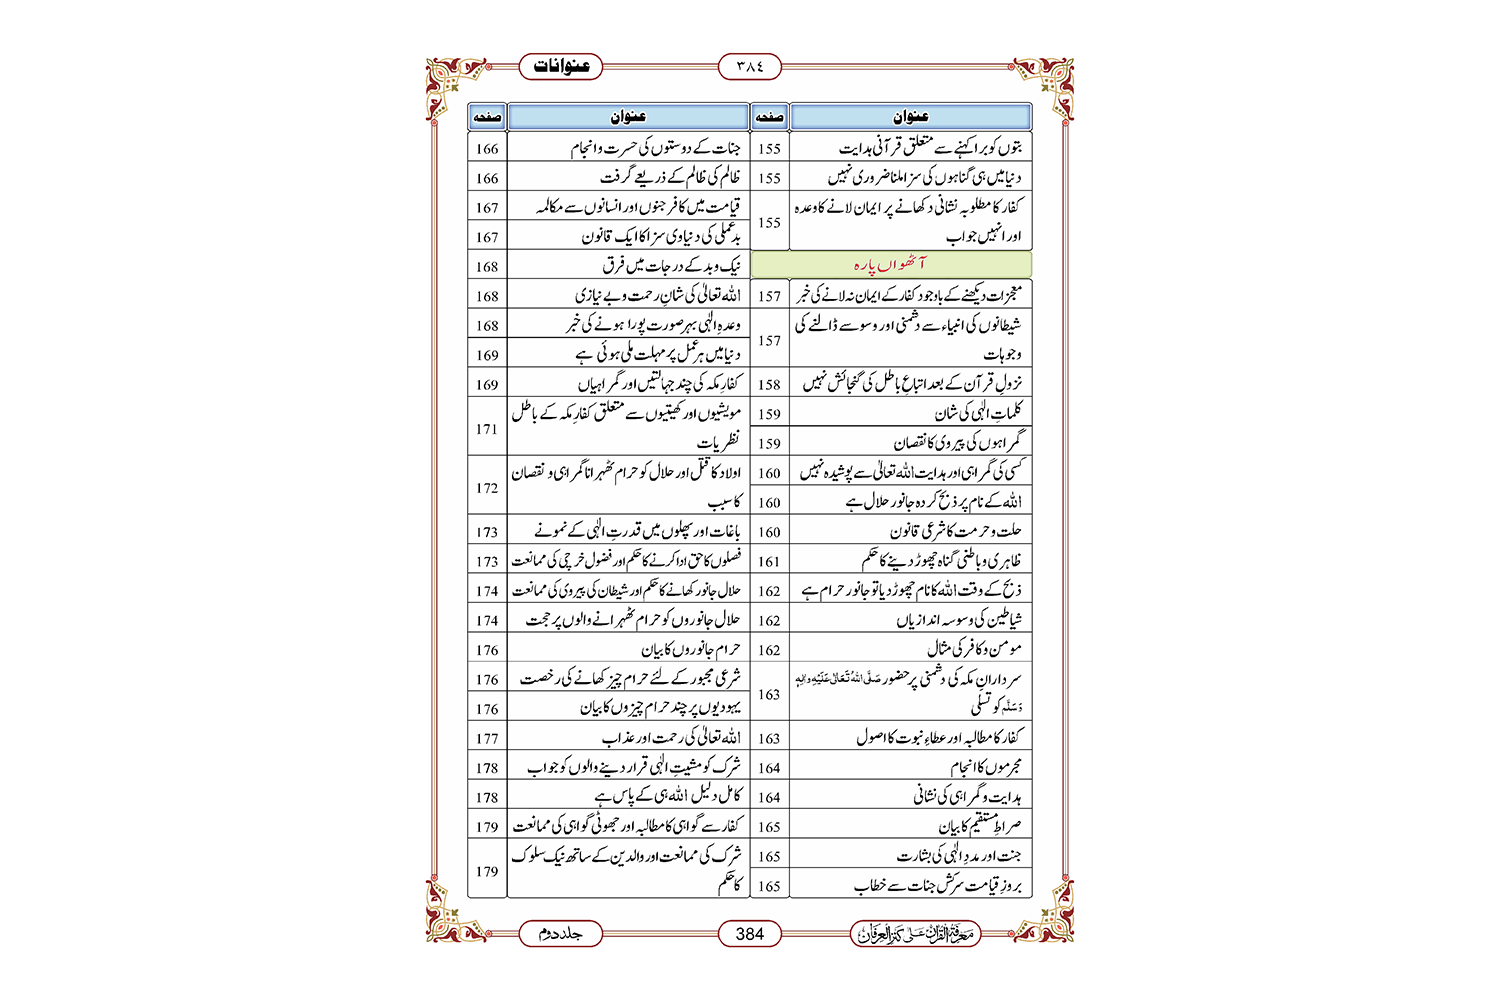 عنوانات
٣٨٤
عنوان صفحہ
بتوں کو برا کہنے سے متعلق قرآنی ہدایت 155
دنیا میں ہی گناہوں کی سزا ملنا ضروری نہیں 155
کفار کا مطلوبہ نشانی دکھانے پر ایمان لانے کا وعدہ
اور انہیں جواب 155
آٹھواں پارہ
معجزات دیکھنے کے باوجود کفار کے ایمان نہ لانے کی خبر 157
شیطانوں کی انبیاء سے دشمنی اور وسوسے ڈالنے کی
وجوہات 157
نزولِ قرآن کے بعد اتباعِ باطل کی گنجائش نہیں 158
کلماتِ الٰہی کی شان 159
گمراہوں کی پیروی کا نقصان 159
کسی کی گمراہی اور ہدایت اللہ تعالیٰ سے پوشیدہ نہیں 160
اللہ کے نام پر ذبح کردہ جانور حلال ہے 160
حلت و حرمت کا شرعی قانون 160
ظاہری و باطنی گناہ چھوڑ دینے کا حکم 161
ذبح کے وقت اللہ کا نام چھوڑ دیا تو جانور حرام ہے 162
شیاطین کی وسوسہ اندازیاں 162
مومن و کافر کی مثال 162
سردارانِ مکہ کی دشمنی پر حضور صَلَّی اللہُ تَعَالٰی عَلَیْہِ وَاٰلِہٖ
وَسَلَّم کو تسلی 163
کفار کا مطالبہ اور عطاءِ نبوت کا اصول 163
مجرموں کا انجام 164
ہدایت و گمراہی کی نشانی 164
صراطِ مستقیم کا بیان 165
جنت اور مددِ الٰہی کی بشارت 165
بروزِ قیامت سرکش جنات سے خطاب 165
عنوان صفحہ
جنات کے دوستوں کی حسرت و انجام 166
ظالم کی ظالم کے ذریعے گرفت 166
قیامت میں کافر جنوں اور انسانوں سے مکالمہ 167
بدعملی کی دنیاوی سزا کا ایک قانون 167
نیک و بد کے درجات میں فرق 168
اللہ تعالیٰ کی شانِ رحمت و بے نیازی 168
وعدہِ الٰہی بہر صورت پورا ہونے کی خبر 168
دنیا میں ہر عمل پر مہلت ملی ہوئی ہے 169
کفارِ مکہ کی چند جہالتیں اور گمراہیاں 169
مویشیوں اور کھیتیوں سے متعلق کفارِ مکہ کے باطل
نظریات 171
اولاد کا قتل اور حلال کو حرام ٹھہرانا گمراہی و نقصان
کا سبب 172
باغات اور پھلوں میں قدرتِ الٰہی کے نمونے 173
فصلوں کا حق ادا کرنے کا حکم اور فضول خرچی کی ممانعت 173
حلال جانور کھانے کا حکم اور شیطان کی پیروی کی ممانعت 174
حلال جانوروں کو حرام ٹھہرانے والوں پر حجت 174
حرام جانوروں کا بیان 176
شرعی مجبور کے لئے حرام چیز کھانے کی رخصت 176
یہودیوں پر چند حرام چیزوں کا بیان 176
اللہ تعالیٰ کی رحمت اور عذاب 177
شرک کو مشیتِ الٰہی قرار دینے والوں کو جواب 178
کامل دلیل اللہ ہی کے پاس ہے 178
کفار سے گواہی کا مطالبہ اور جھوٹی گواہی کی ممانعت 179
شرک کی ممانعت اور والدین کے ساتھ نیک سلوک
کا حکم 179
معرفۃ القرآن علیٰ کنز العرفان
384
جلد دوم